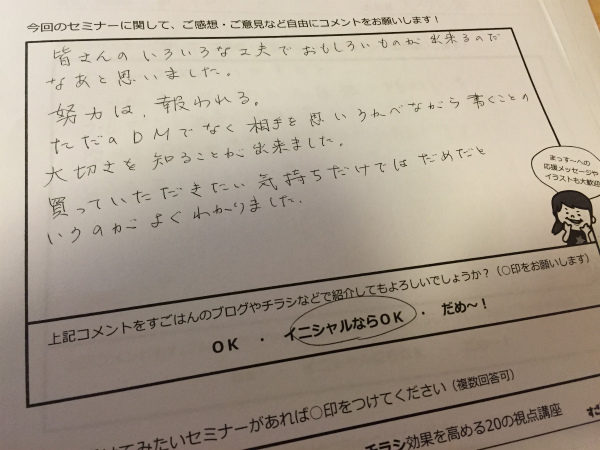 今回のセミナーに関して、ご感想・ご意見など自由にコメントをお願いします！
皆さんのいろいろな工夫でおもしろいものが出来るのだ
なあと思いました。
努力は、報われる。
ただのDMでなく相手を思いうかべながら書くことの
大切さを知ることが出来ました。
買っていただきたい気持ちだけではだめだと
いうのがよくわかりました。
まっすーへの
応援メッセージや
イラストも大歓迎
上記コメントをすごはんのブログやチラシなどで紹介してもよろしいでしょうか？（○印をお願いします）
OK ・ イニシャルならOK ・ だめ〜！
てみたいセミナーがあれば○印をつけてください（複数回答可）
チラシ効果を高める20の視点講座